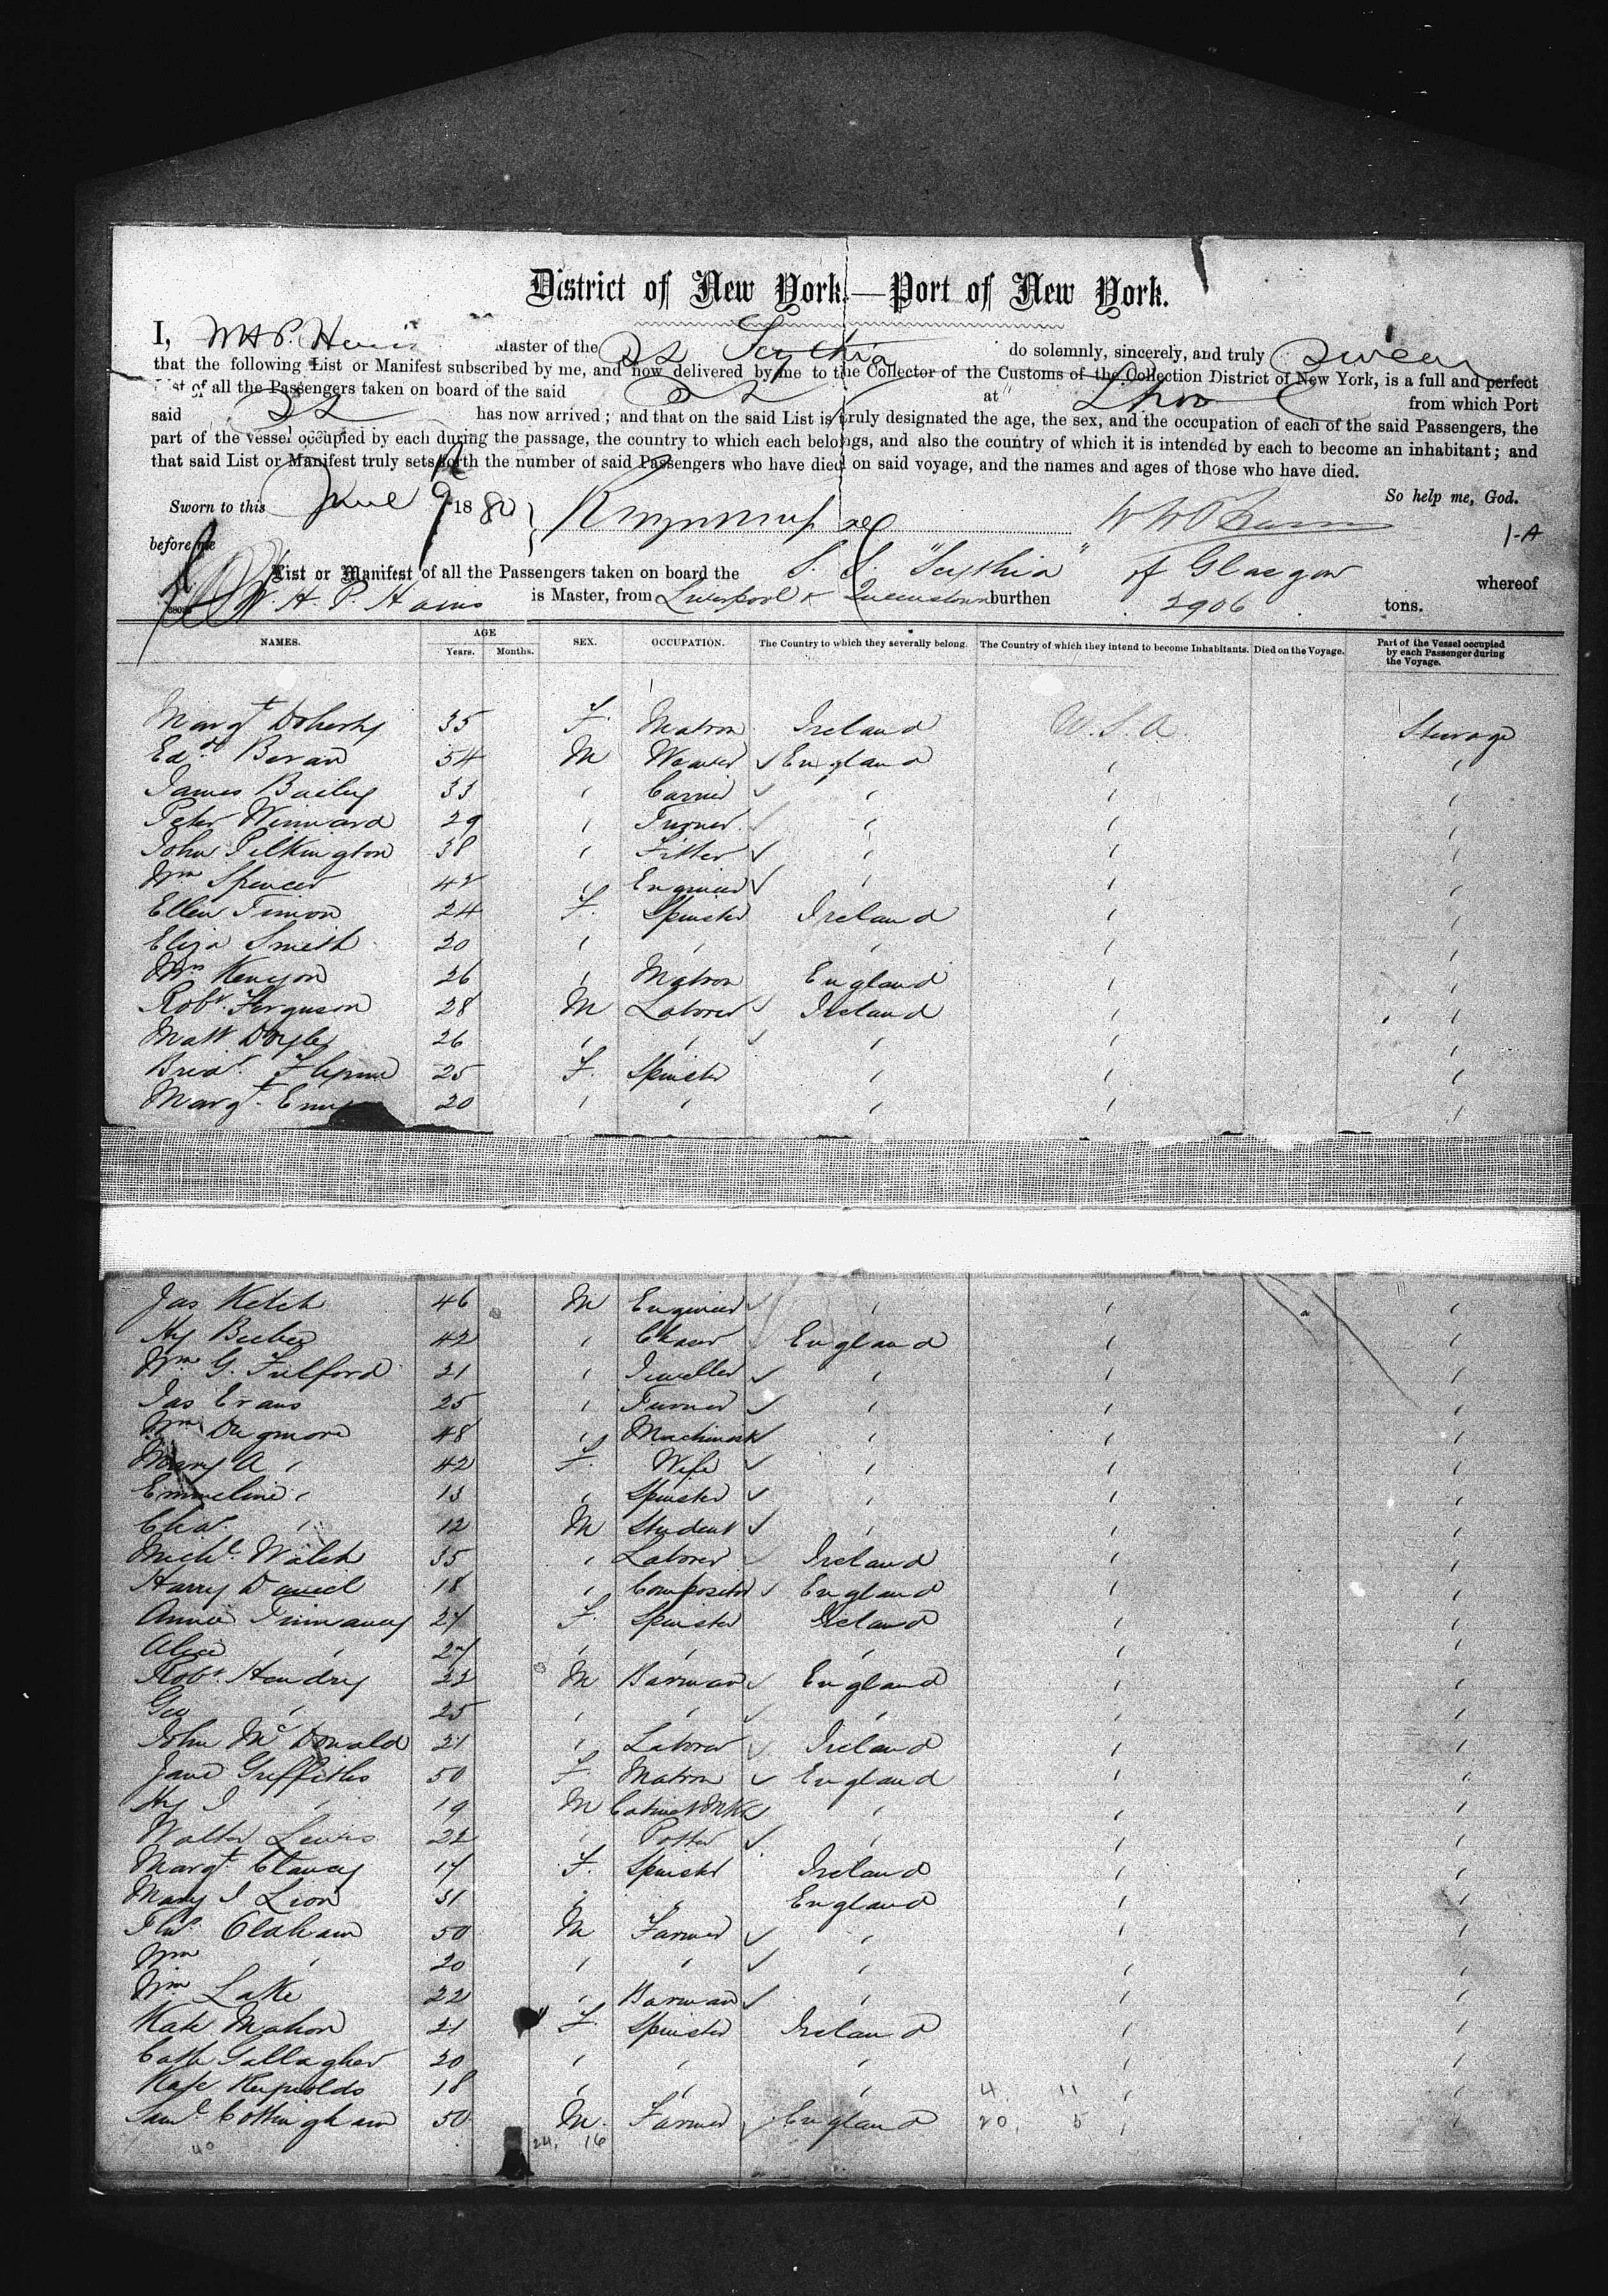 District of New York.—Port of New York.
I, Master of the SS Scythia do solemnly, sincerely, and truly swear
that the following List or Manifest subscribed by me, and now delivered by me to the Collector of the Customs of the Collection District of New York, is a full and perfect
List of all the Passengers taken on board of the said SS at from which Port
said SS has now arrived; and that on the said List is truly designated the age, the sex, and the occupation of each of the said Passengers, the
part of the vessel occupied by each during the passage, the country to which each belongs, and also the country of which it is intended by each to become an inhabitant; and
that said List or Manifest truly sets forth the number of said Passengers who have died on said voyage, and the names and ages of those who have died.
So help me, God.
Sworn to this June 9 1880
before me
1-A
List or Manifest of all the Passengers taken on board the S. S. "Scythia" of Glasgow whereof
W. H. P. Hains is Master, from Liverpool & Queenstown burthen 2906 tons.
NAMES. AGE Years. Months. SEX. OCCUPATION. The Country to which they severally belong. The Country of which they intend to become Inhabitants. Died on the Voyage. Part of the Vessel occupied by each Passenger during the Voyage.
Margt Doherty 35 F. Matron Ireland U.S.A. Steerage
Edd Bevan 54 M Weaver ✓ England ,
James Bailey 33 , Carrier ✓ , , ,
Peter Winward 29 , Turner ✓ , , ,
John Pilkington 38 , Fitter ✓ , , ,
Wm Spencer 42 , Engineer ✓ , , ,
Ellen Timon 24 F. Spinster Ireland , ,
Eliza Smith 20 , , , , ,
Mrs Kenyon 26 , Matron England , ,
Robt Ferguson 28 M Laborer ✓ Ireland , ,
Matt Doyle 26 , , ✓ , , ,
Bridt Flynn 25 F. Spinster , , ,
Margt 20 , , , , ,
Jas Ketch 46 M Engineer ✓ , , ,
Hy Beebee 42 , Chaser England , ,
Wm G. Fulford 21 , Jeweller ✓ , , ,
Jas Evans 25 , Turner ✓ , , ,
Wm Dugmore 48 , Machinist ✓ , , ,
Mary A , 42 F. Wife ✓ , , ,
Emmeline , 13 , Spinster ✓ , , ,
Chas , 12 M Student ✓ , , ,
Michl Walsh 35 , Laborer ✓ Ireland , ,
Harry Daniel 18 , Compositor ✓ England , ,
Annie 27 F. Spinster Ireland , ,
Alice , 27 , , , , ,
Robt Hendry 22 M Barman ✓ England , ,
Geo , 25 , , ✓ , , ,
John McDonald 21 , Laborer ✓ Ireland , ,
Jane Griffiths 50 F. Matron ✓ England , ,
Hy J , 19 M Cabinet Mkr ✓ , , ,
Walter Lewis 22 , Potter ✓ , , ,
Margt Clancy 17 F. Spinster Ireland , ,
Mary J Lion 31 , , England , ,
Thos Oldham 50 M Farmer ✓ , , ,
Wm , 20 , , ✓ , , ,
Wm Lake 22 , Barman ✓ , , ,
Kate Mahon 21 F. Spinster Ireland , ,
Cath Gallagher 20 , , , , ,
Kate Reynolds 18 , , , 4 11 , ,
Saml Cottingham 50 M. Farmer ✓ England 20 5 , ,
40 24, 16